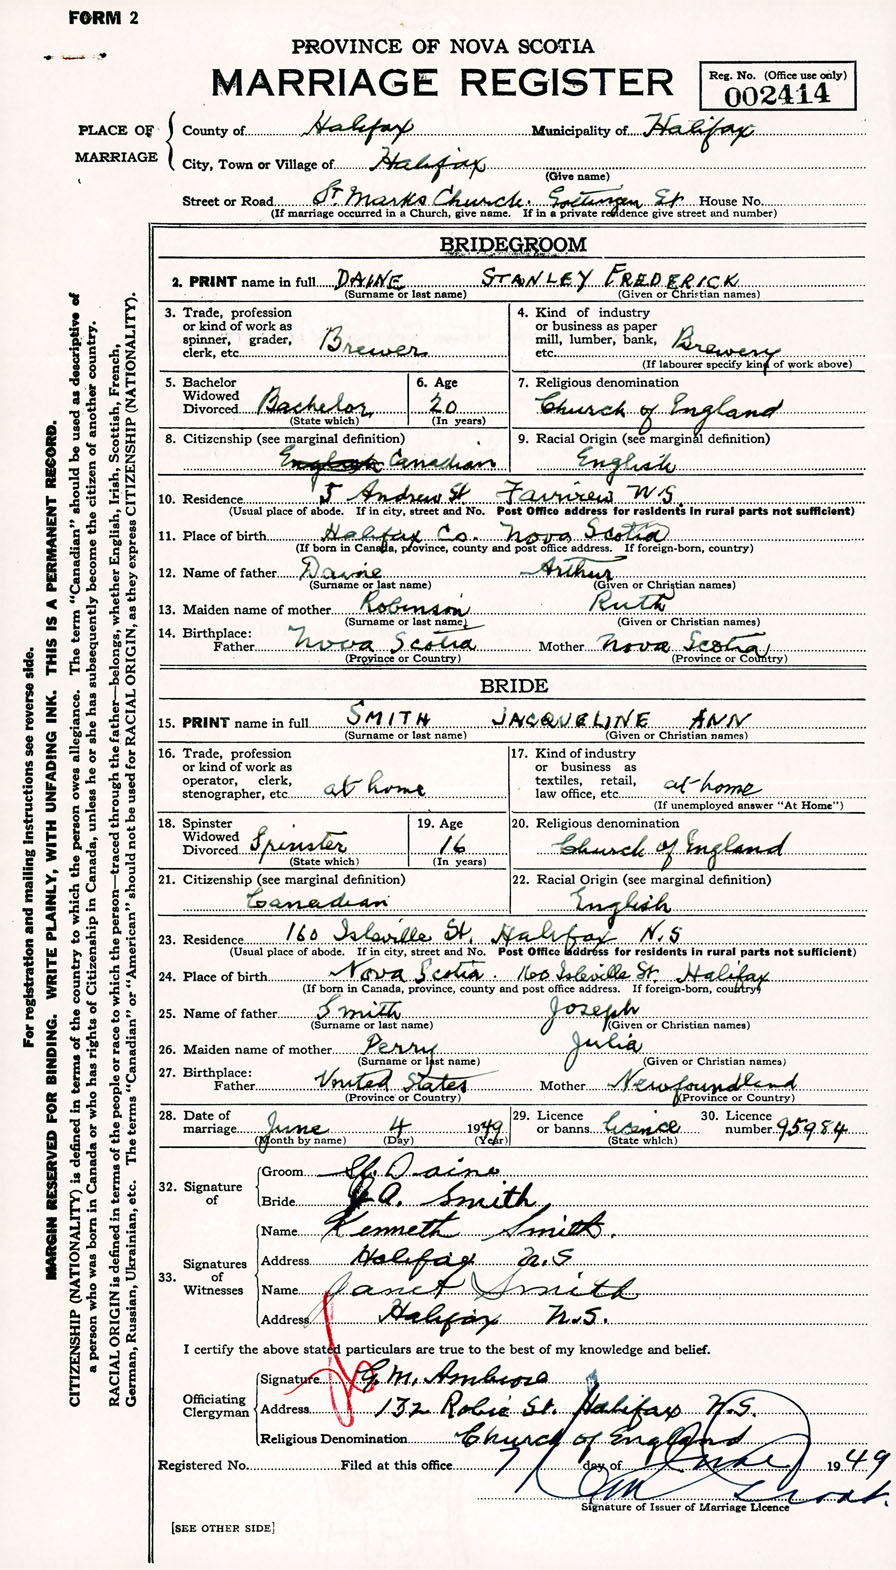 FORM 2
PROVINCE OF NOVA SCOTIA
MARRIAGE REGISTER
Reg. No. (Office use only)
002414
PLACE OF MARRIAGE
County of Halifax Municipality of Halifax
City, Town or Village of Halifax
(Give name)
Street or Road St Marks Church. Gottingen St House No.
(If marriage occurred in a Church, give name. If in a private residence give street and number)
BRIDEGROOM
2. PRINT name in full DAINE STANLEY FREDERICK
(Surname or last name) (Given or Christian names)
3. Trade, profession or kind of work as spinner, grader, clerk, etc. Brewer
4. Kind of industry or business as paper mill, lumber, bank, etc. Brewery
(If labourer specify kind of work above)
5. Bachelor Widowed Divorced Bachelor
(State which)
6. Age 20
(In years)
7. Religious denomination
Church of England
8. Citizenship (see marginal definition)
English Canadian
9. Racial Origin (see marginal definition)
English
10. Residence 5 Andrew St Fairview N.S.
(Usual place of abode. If in city, street and No. Post Office address for residents in rural parts not sufficient)
11. Place of birth Halifax Co. Nova Scotia
(If born in Canada, province, county and post office address. If foreign-born, country)
12. Name of father Daine Arthur
(Surname or last name) (Given or Christian names)
13. Maiden name of mother Robinson Ruth
(Surname or last name) (Given or Christian names)
14. Birthplace:
Father Nova Scotia Mother Nova Scotia
(Province or Country) (Province or Country)
BRIDE
15. PRINT name in full SMITH JACQUELINE ANN
(Surname or last name) (Given or Christian names)
16. Trade, profession or kind of work as operator, clerk, stenographer, etc. at home
17. Kind of industry or business as textiles, retail, law office, etc. at home
(If unemployed answer "At Home")
18. Spinster Widowed Divorced Spinster
(State which)
19. Age 16
(In years)
20. Religious denomination
Church of England
21. Citizenship (see marginal definition)
Canadian
22. Racial Origin (see marginal definition)
English
23. Residence 160 Isleville St. Halifax N.S
(Usual place of abode. If in city, street and No. Post Office address for residents in rural parts not sufficient)
24. Place of birth Nova Scotia. 160 Isleville St. Halifax
(If born in Canada, province, county and post office address. If foreign-born, country)
25. Name of father Smith Joseph
(Surname or last name) (Given or Christian names)
26. Maiden name of mother Perry Julia
(Surname or last name) (Given or Christian names)
27. Birthplace:
Father United States Mother Newfoundland
(Province or Country) (Province or Country)
28. Date of marriage June 4 1949
(Month by name) (Day) (Year)
29. Licence or banns licence
(State which)
30. Licence number 95984
32. Signature of
Groom Daine
Bride J.A. Smith
33. Signatures of Witnesses
Name Kenneth Smith.
Address Halifax N.S
Name Janet Smith
Address Halifax N.S.
I certify the above stated particulars are true to the best of my knowledge and belief.
Officiating Clergyman
Signature G.M. Ambrose
Address 132 Robie St. Halifax N.S.
Religious Denomination Church of England
Registered No. Filed at this office 7 day of June 1949
Signature of Issuer of Marriage Licence
[SEE OTHER SIDE]
For registration and mailing instructions see reverse side.
MARGIN RESERVED FOR BINDING. WRITE PLAINLY, WITH UNFADING INK. THIS IS A PERMANENT RECORD.
CITIZENSHIP (NATIONALITY) is defined in terms of the country to which the person owes allegiance. The term "Canadian" should be used as descriptive of
a person who was born in Canada or who has rights of Citizenship in Canada, unless he or she has subsequently become the citizen of another country.
RACIAL ORIGIN is defined in terms of the people or race to which the person—traced through the father—belongs, whether English, Irish, Scottish, French,
German, Russian, Ukrainian, etc. The terms "Canadian" or "American" should not be used for RACIAL ORIGIN, as they express CITIZENSHIP (NATIONALITY).